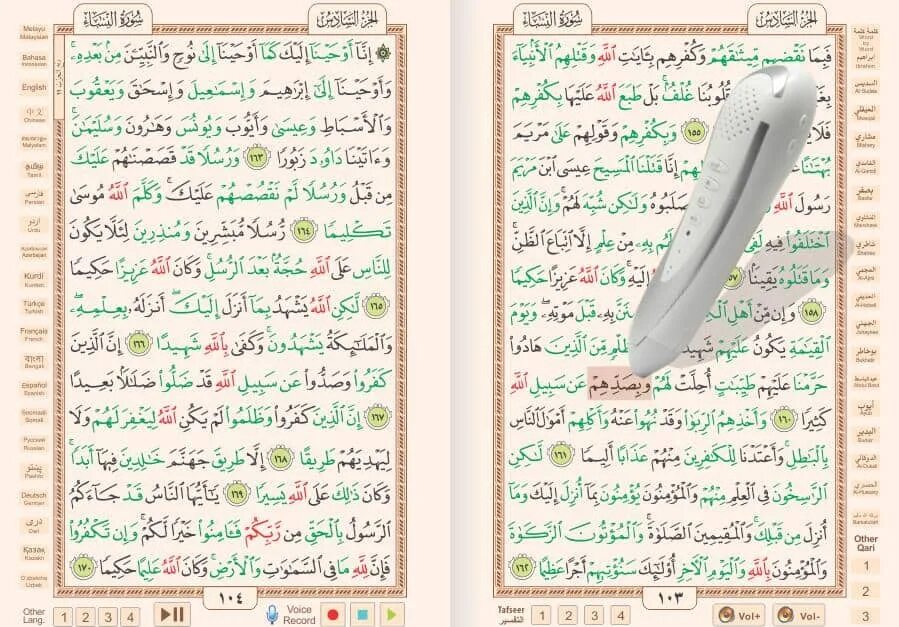 سُورَةُ النِّسَاءِ
الجُزْءُ السَّادِسُ
فَبِمَا نَقْضِهِم مِّيثَٰقَهُمْ وَكُفْرِهِم بِـَٔايَٰتِ ٱللَّهِ وَقَتْلِهِمُ ٱلْأَنۢبِيَآءَ
قُلُوبُنَا غُلْفٌۢ بَلْ طَبَعَ ٱللَّهُ عَلَيْهَا بِكُفْرِهِمْ
فَلَا ١٥٥ وَبِكُفْرِهِمْ وَقَوْلِهِمْ عَلَىٰ مَرْيَمَ
بُهْتَٰنًا إِنَّا قَتَلْنَا ٱلْمَسِيحَ عِيسَى ٱبْنَ مَرْيَمَ
رَسُولَ ٱللَّهِ صَلَبُوهُ وَلَٰكِن شُبِّهَ لَهُمْ ۚ وَإِنَّ ٱلَّذِينَ
ٱخْتَلَفُوا۟ فِيهِ لَفِى لَهُم بِهِۦ مِنْ عِلْمٍ إِلَّا ٱتِّبَاعَ ٱلظَّنِّ ۚ
وَمَا قَتَلُوهُ يَقِينًۢا ١٥٧ إِلَيْهِ ۚ وَكَانَ ٱللَّهُ عَزِيزًا حَكِيمًا
١٥٨ وَإِن مِّنْ أَهْلِ بِهِۦ قَبْلَ مَوْتِهِۦ ۖ وَيَوْمَ
ٱلْقِيَٰمَةِ يَكُونُ عَلَيْهِمْ شَهِيدًا مِّنَ ٱلَّذِينَ هَادُوا۟
حَرَّمْنَا عَلَيْهِمْ طَيِّبَٰتٍ أُحِلَّتْ لَهُمْ وَبِصَدِّهِمْ عَن سَبِيلِ ٱللَّهِ
كَثِيرًا ١٦٠ وَأَخْذِهِمُ ٱلرِّبَوٰا۟ وَقَدْ نُهُوا۟ عَنْهُ وَأَكْلِهِمْ أَمْوَٰلَ ٱلنَّاسِ
بِٱلْبَٰطِلِ ۚ وَأَعْتَدْنَا لِلْكَٰفِرِينَ مِنْهُمْ عَذَابًا أَلِيمًا ١٦١ لَّٰكِنِ
ٱلرَّٰسِخُونَ فِى ٱلْعِلْمِ مِنْهُمْ وَٱلْمُؤْمِنُونَ يُؤْمِنُونَ بِمَآ أُنزِلَ إِلَيْكَ وَمَآ
أُنزِلَ مِن قَبْلِكَ ۚ وَٱلْمُقِيمِينَ ٱلصَّلَوٰةَ ۚ وَٱلْمُؤْتُونَ ٱلزَّكَوٰةَ
وَٱلْمُؤْمِنُونَ بِٱللَّهِ وَٱلْيَوْمِ ٱلْـَٔاخِرِ أُو۟لَٰٓئِكَ سَنُؤْتِيهِمْ أَجْرًا عَظِيمًا ١٦٢
١٠٣
Tafseer التفسير 1 2 3 4
Vol+ Vol-
كلمة كلمة
Word by Word
ابراهيم
Ibrahim
السديس
Al-Sudais
الحذيفي
مشاري
Mishary
الغامدي
Al-Gamdi
بصفر
Basfar
المنشاوي
شاطري
Shatree
العجمي
الجهني
بوخاطر
أيوب
البدير
الحصري
Other Qari
1
2
3
سُورَةُ النِّسَاءِ
الجُزْءُ السَّادِسُ
إِنَّآ أَوْحَيْنَآ إِلَيْكَ كَمَآ أَوْحَيْنَآ إِلَىٰ نُوحٍ وَٱلنَّبِيِّـۧنَ مِنۢ بَعْدِهِۦ ۚ
وَأَوْحَيْنَآ إِلَىٰٓ إِبْرَٰهِيمَ وَإِسْمَٰعِيلَ وَإِسْحَٰقَ وَيَعْقُوبَ
وَٱلْأَسْبَاطِ وَعِيسَىٰ وَأَيُّوبَ وَيُونُسَ وَهَٰرُونَ وَسُلَيْمَٰنَ ۚ
وَءَاتَيْنَا دَاوُۥدَ زَبُورًا ١٦٣ وَرُسُلًا قَدْ قَصَصْنَٰهُمْ عَلَيْكَ
مِن قَبْلُ وَرُسُلًا لَّمْ نَقْصُصْهُمْ عَلَيْكَ ۚ وَكَلَّمَ ٱللَّهُ مُوسَىٰ
تَكْلِيمًا ١٦٤ رُّسُلًا مُّبَشِّرِينَ وَمُنذِرِينَ لِئَلَّا يَكُونَ
لِلنَّاسِ عَلَى ٱللَّهِ حُجَّةٌۢ بَعْدَ ٱلرُّسُلِ ۚ وَكَانَ ٱللَّهُ عَزِيزًا حَكِيمًا
١٦٥ لَّٰكِنِ ٱللَّهُ يَشْهَدُ بِمَآ أَنزَلَ إِلَيْكَ ۖ أَنزَلَهُۥ بِعِلْمِهِۦ ۖ
وَٱلْمَلَٰٓئِكَةُ يَشْهَدُونَ ۚ وَكَفَىٰ بِٱللَّهِ شَهِيدًا ١٦٦ إِنَّ ٱلَّذِينَ
كَفَرُوا۟ وَصَدُّوا۟ عَن سَبِيلِ ٱللَّهِ قَدْ ضَلُّوا۟ ضَلَٰلًۢا بَعِيدًا
١٦٧ إِنَّ ٱلَّذِينَ كَفَرُوا۟ وَظَلَمُوا۟ لَمْ يَكُنِ ٱللَّهُ لِيَغْفِرَ لَهُمْ وَلَا
لِيَهْدِيَهُمْ طَرِيقًا ١٦٨ إِلَّا طَرِيقَ جَهَنَّمَ خَٰلِدِينَ فِيهَآ أَبَدًا ۚ
وَكَانَ ذَٰلِكَ عَلَى ٱللَّهِ يَسِيرًا ١٦٩ يَٰٓأَيُّهَا ٱلنَّاسُ قَدْ جَآءَكُمُ
ٱلرَّسُولُ بِٱلْحَقِّ مِن رَّبِّكُمْ فَـَٔامِنُوا۟ خَيْرًا لَّكُمْ ۚ وَإِن تَكْفُرُوا۟
فَإِنَّ لِلَّهِ مَا فِى ٱلسَّمَٰوَٰتِ وَٱلْأَرْضِ ۚ وَكَانَ ٱللَّهُ عَلِيمًا حَكِيمًا ١٧٠
١٠٤
Melayu
Malaysian
Bahasa
Indonesian
English
中文
Chinese
Malayalam
தமிழ்
Tamil
فارسی
Persian
اردو
Urdu
Azerbaijan
Kurdî
Türkçe
Turkish
Français
French
বাংলা
Bengali
Español
Spanish
Soomaali
Somali
Русский
Russian
پښتو
Deutsch
German
دری
Dari
Қазақ
Kazakh
Uzbek
Other Lang. 1 2 3 4
Voice Record